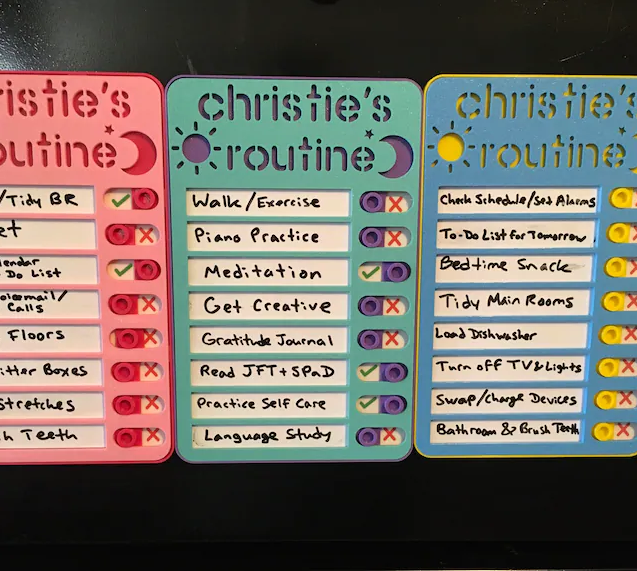 ristie's
outine
/Tidy BR
et
lendar
Do List
oicemail/
Calls
Floors
itter Boxes
Stretches
h Teeth
christie's
routine
Walk/Exercise
Piano Practice
Meditation
Get Creative
Gratitude Journal
Read JFT + SPaD
Practice Self Care
Language Study
christie's
routine
Check Schedule/Set Alarms
To-Do List for Tomorrow
Bedtime Snack
Tidy Main Rooms
Load Dishwasher
Turn off TV & Lights
Swap/Charge Devices
Bathroom & Brush Teeth